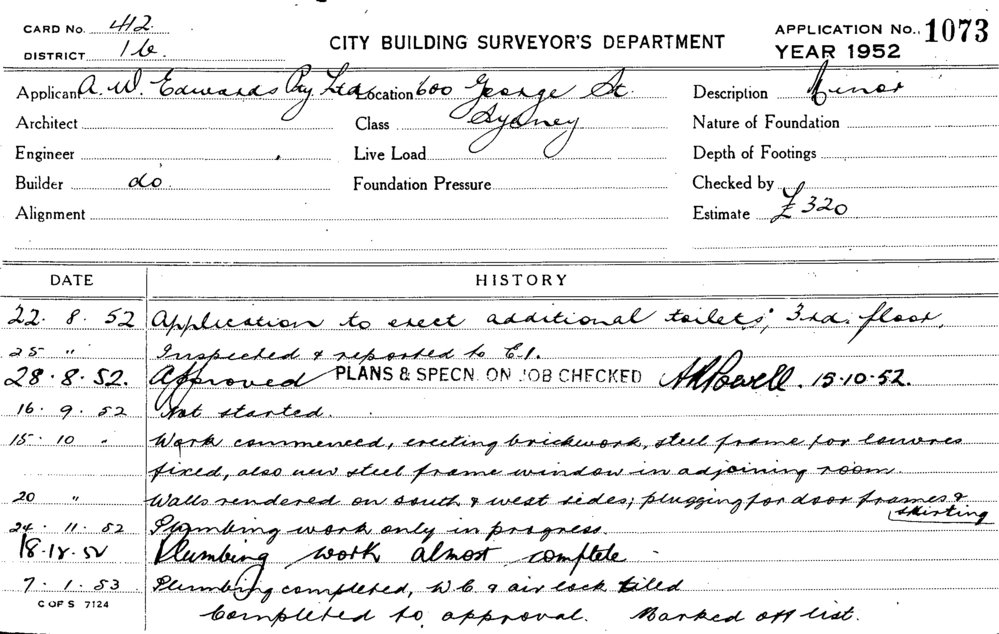 CARD No. 412
DISTRICT 16
CITY BUILDING SURVEYOR'S DEPARTMENT
APPLICATION No. 1073
YEAR 1952
Applicant A. W. Edwards Pty Ltd. Location 600 George St. Description Minor
Architect Class Sydney Nature of Foundation
Engineer Live Load Depth of Footings
Builder do. Foundation Pressure Checked by
Alignment Estimate £320
DATE HISTORY
22. 8. 52 Application to erect additional toilets; 3rd. floor.
25 " Inspected & reported to C.I.
28.8.52. Approved PLANS & SPECN. ON JOB CHECKED A R Powell. 15.10.52.
16. 9. 52 Not started.
15. 10 " Work commenced, erecting brickwork, steel frame for louvres
fixed, also new steel frame window in adjoining room.
20 " Walls rendered on south & west sides; plugging for door frames &
skirting
24. 11. 52 Plumbing work only in progress.
18.12.52 Plumbing work almost complete
7. 1. 53 Plumbing completed, W C & air lock tiled
C OF S 7124
Completed to approval. Marked off list.